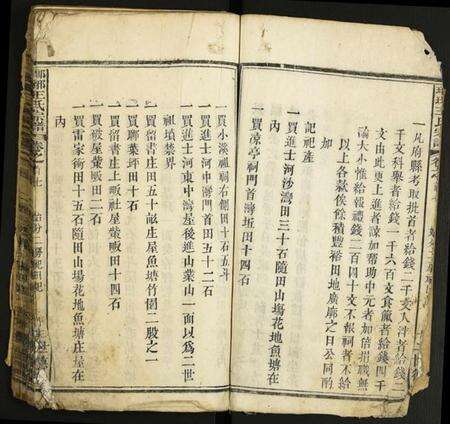 一凡府縣考取批首者給錢二千文入泮者給錢二
千文科舉者給錢一千六百文食廩者給錢四千
文由此更上進者諒加幫助中元者加倍捐職無
論大小惟給報禮錢二百四十文不報祠者不給
以上各款俟餘積豐裕田地廣廓之日公同酌
加
記祀產
一買進士河沙灣田三十石隨田山塲花地魚塘在
內
一買涼亭祠門首灣坵田十四石
一買小溪祖祠右側田十石五斗
一買進士河中灣門首田五十二石
一買進士河東中灣屋後進山業山一面以為二世
祖墳禁界
一買留書庄田五十畝庄屋魚塘竹園二股之一
一買聊葉坪田十石
一買留書庄上畈社屋墩畈田十四石
一買破屋墩畈田二石
一買雷家衖田十五石隨田山塲花地魚塘庄屋在
內
瑯琊王氏宗譜 卷之首